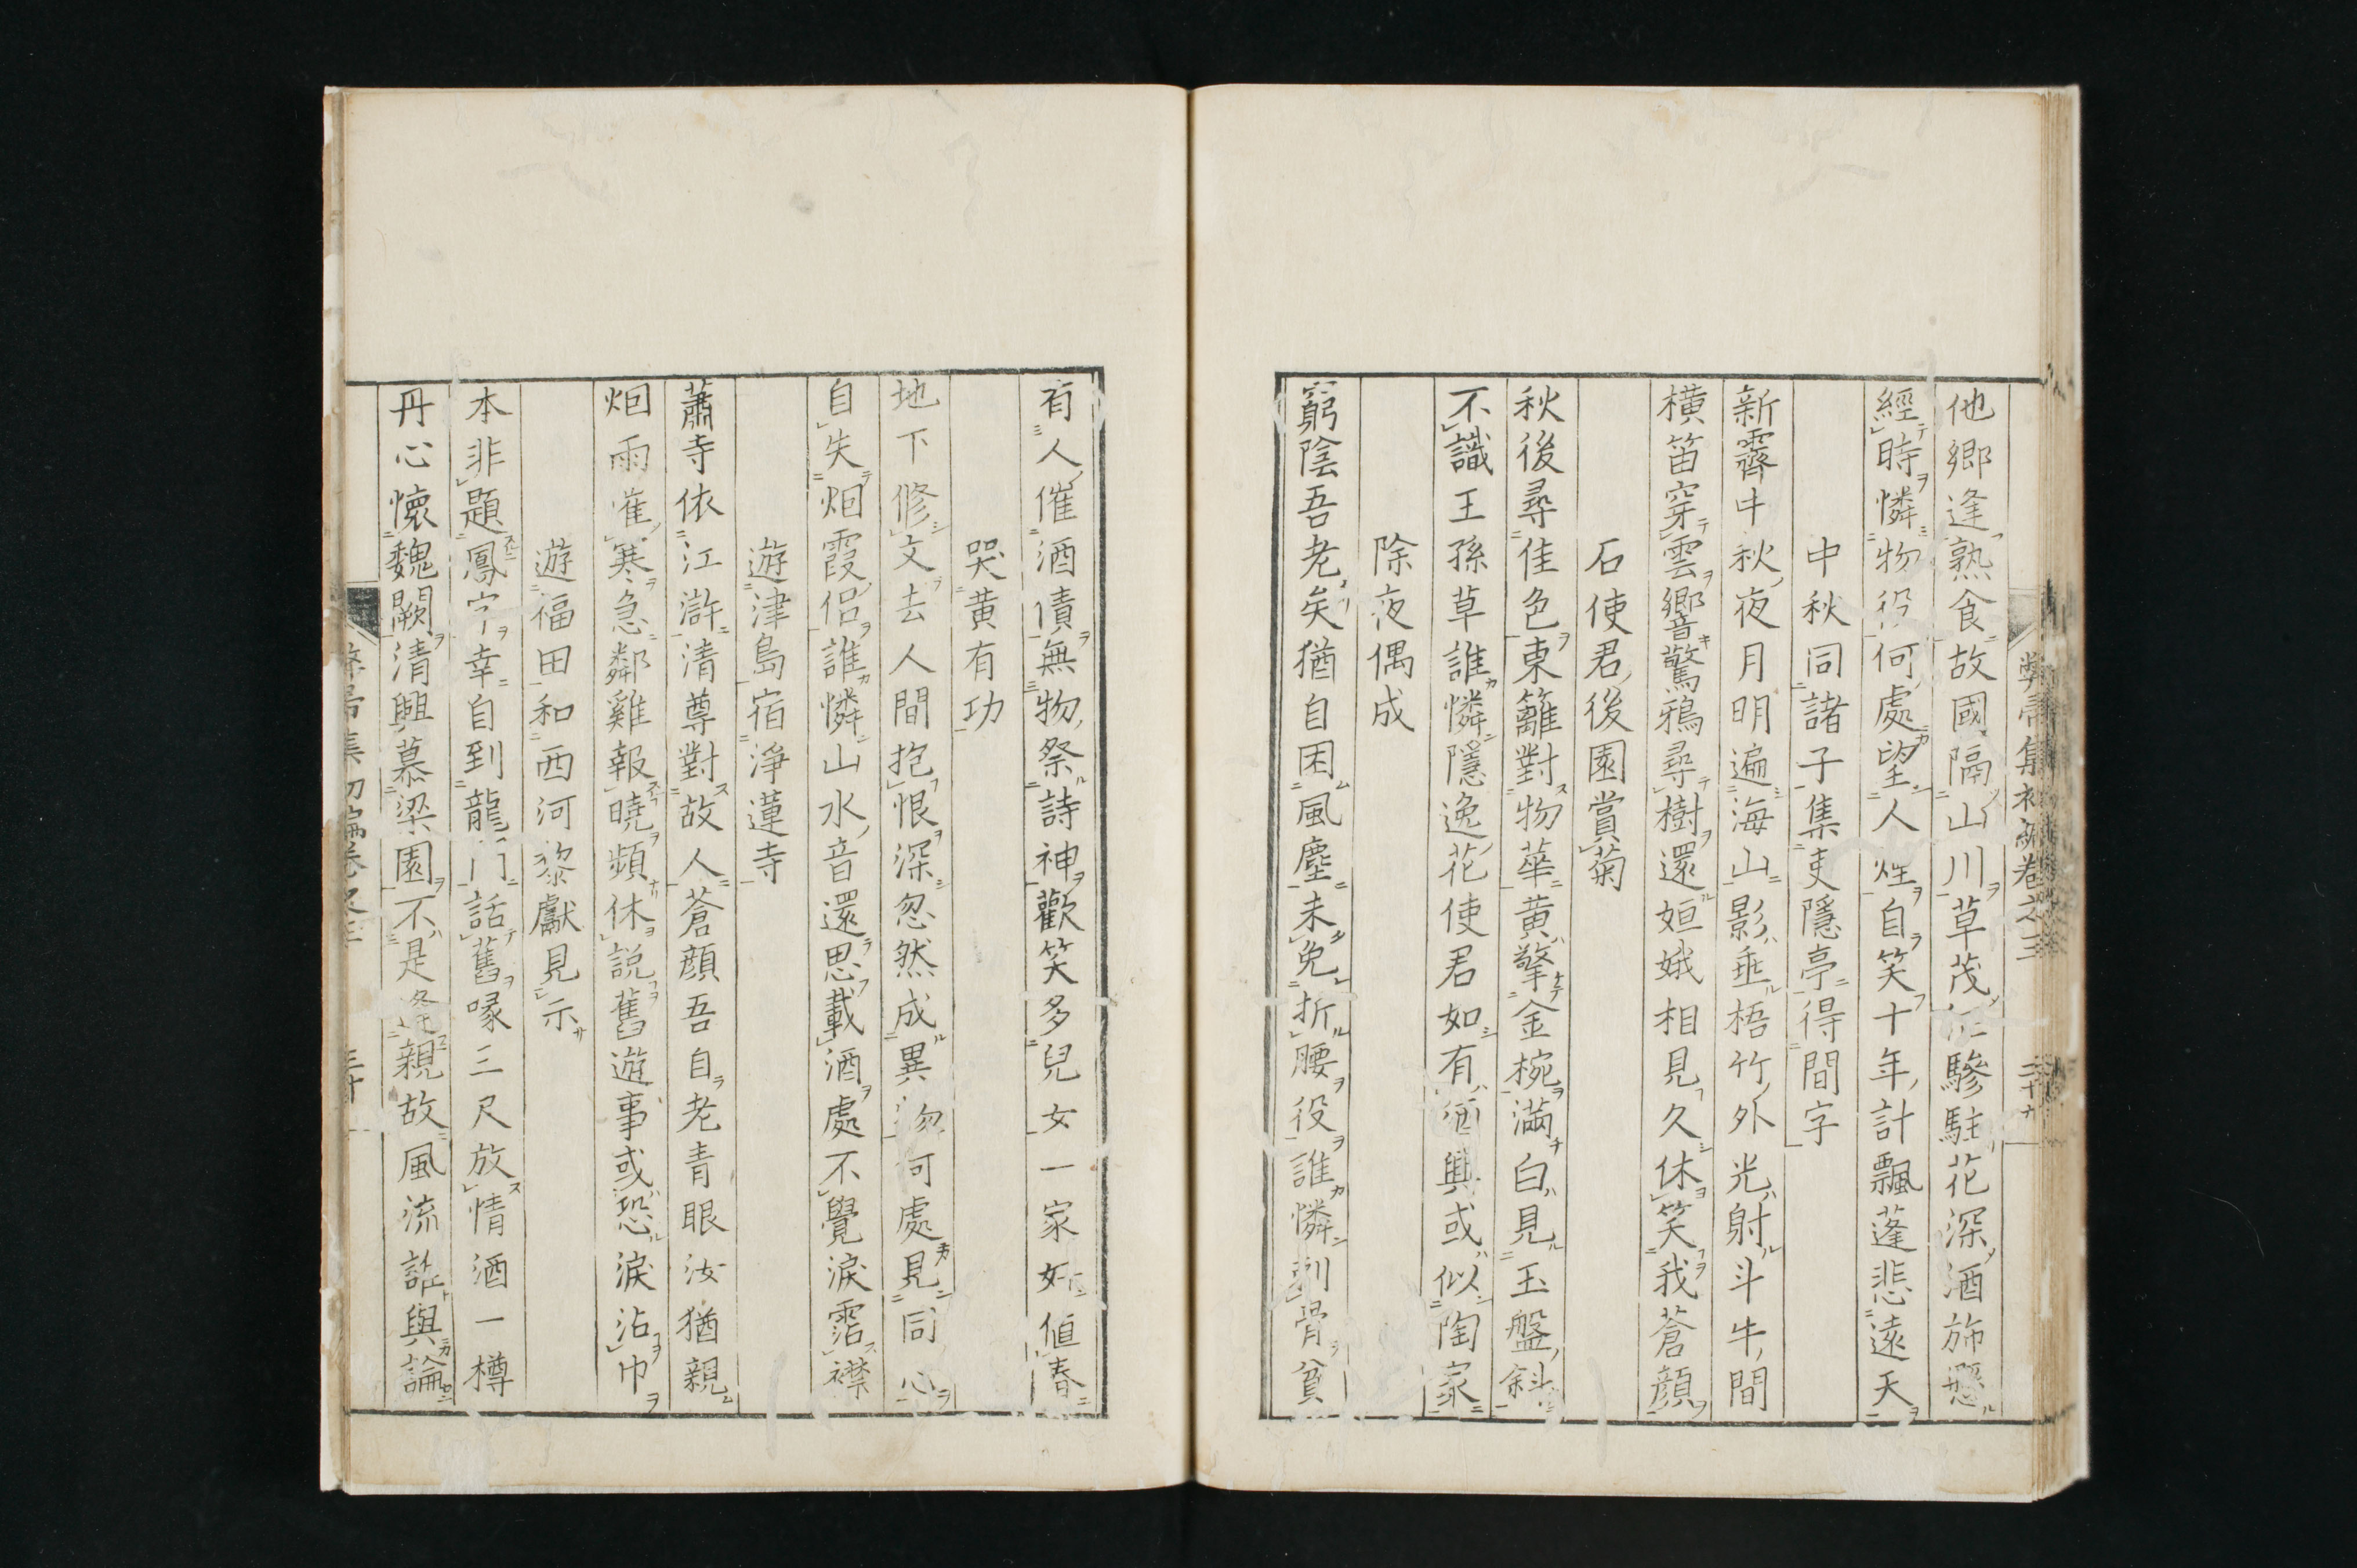 集初編卷之三 二十九
他鄉逢熟食故國隔山川草茂江驂駐花深酒斾懸
經時憐物役何處望人烟自笑十年計飄蓬悲遠天
中秋同諸子集吏隱亭得間字
新霽中秋夜月明遍海山影垂梧竹外光射斗牛間
橫笛穿雲響驚鴉尋樹還姮娥相見久休笑我蒼顏
石使君後園賞菊
秋後尋佳色東籬對物華黃擎金椀滿白見玉盤斜
不識王孫草誰憐隱逸花使君如有酒興或似陶家
除夜偶成
窮陰吾老矣猶自困風塵未免折腰役誰憐刺骨貧
有人催酒債無物祭詩神歡笑多兒女一家好値春
哭黃有功
地下修文去人間抱恨深忽然成異物何處見同心
自失烟霞侶誰憐山水音還思載酒處不覺淚霑襟
遊津島宿淨蓮寺
蕭寺依江滸清尊對故人蒼顏吾自老青眼汝猶親
烟雨催寒急鄰雞報曉頻休說舊遊事或恐淚沾巾
遊福田和西河黎獻見示
本非題鳳字幸自到龍門話舊喙三尺放情酒一樽
丹心懷魏闕清興慕梁園不是逢親故風流誰與論
集初編卷之三 三十